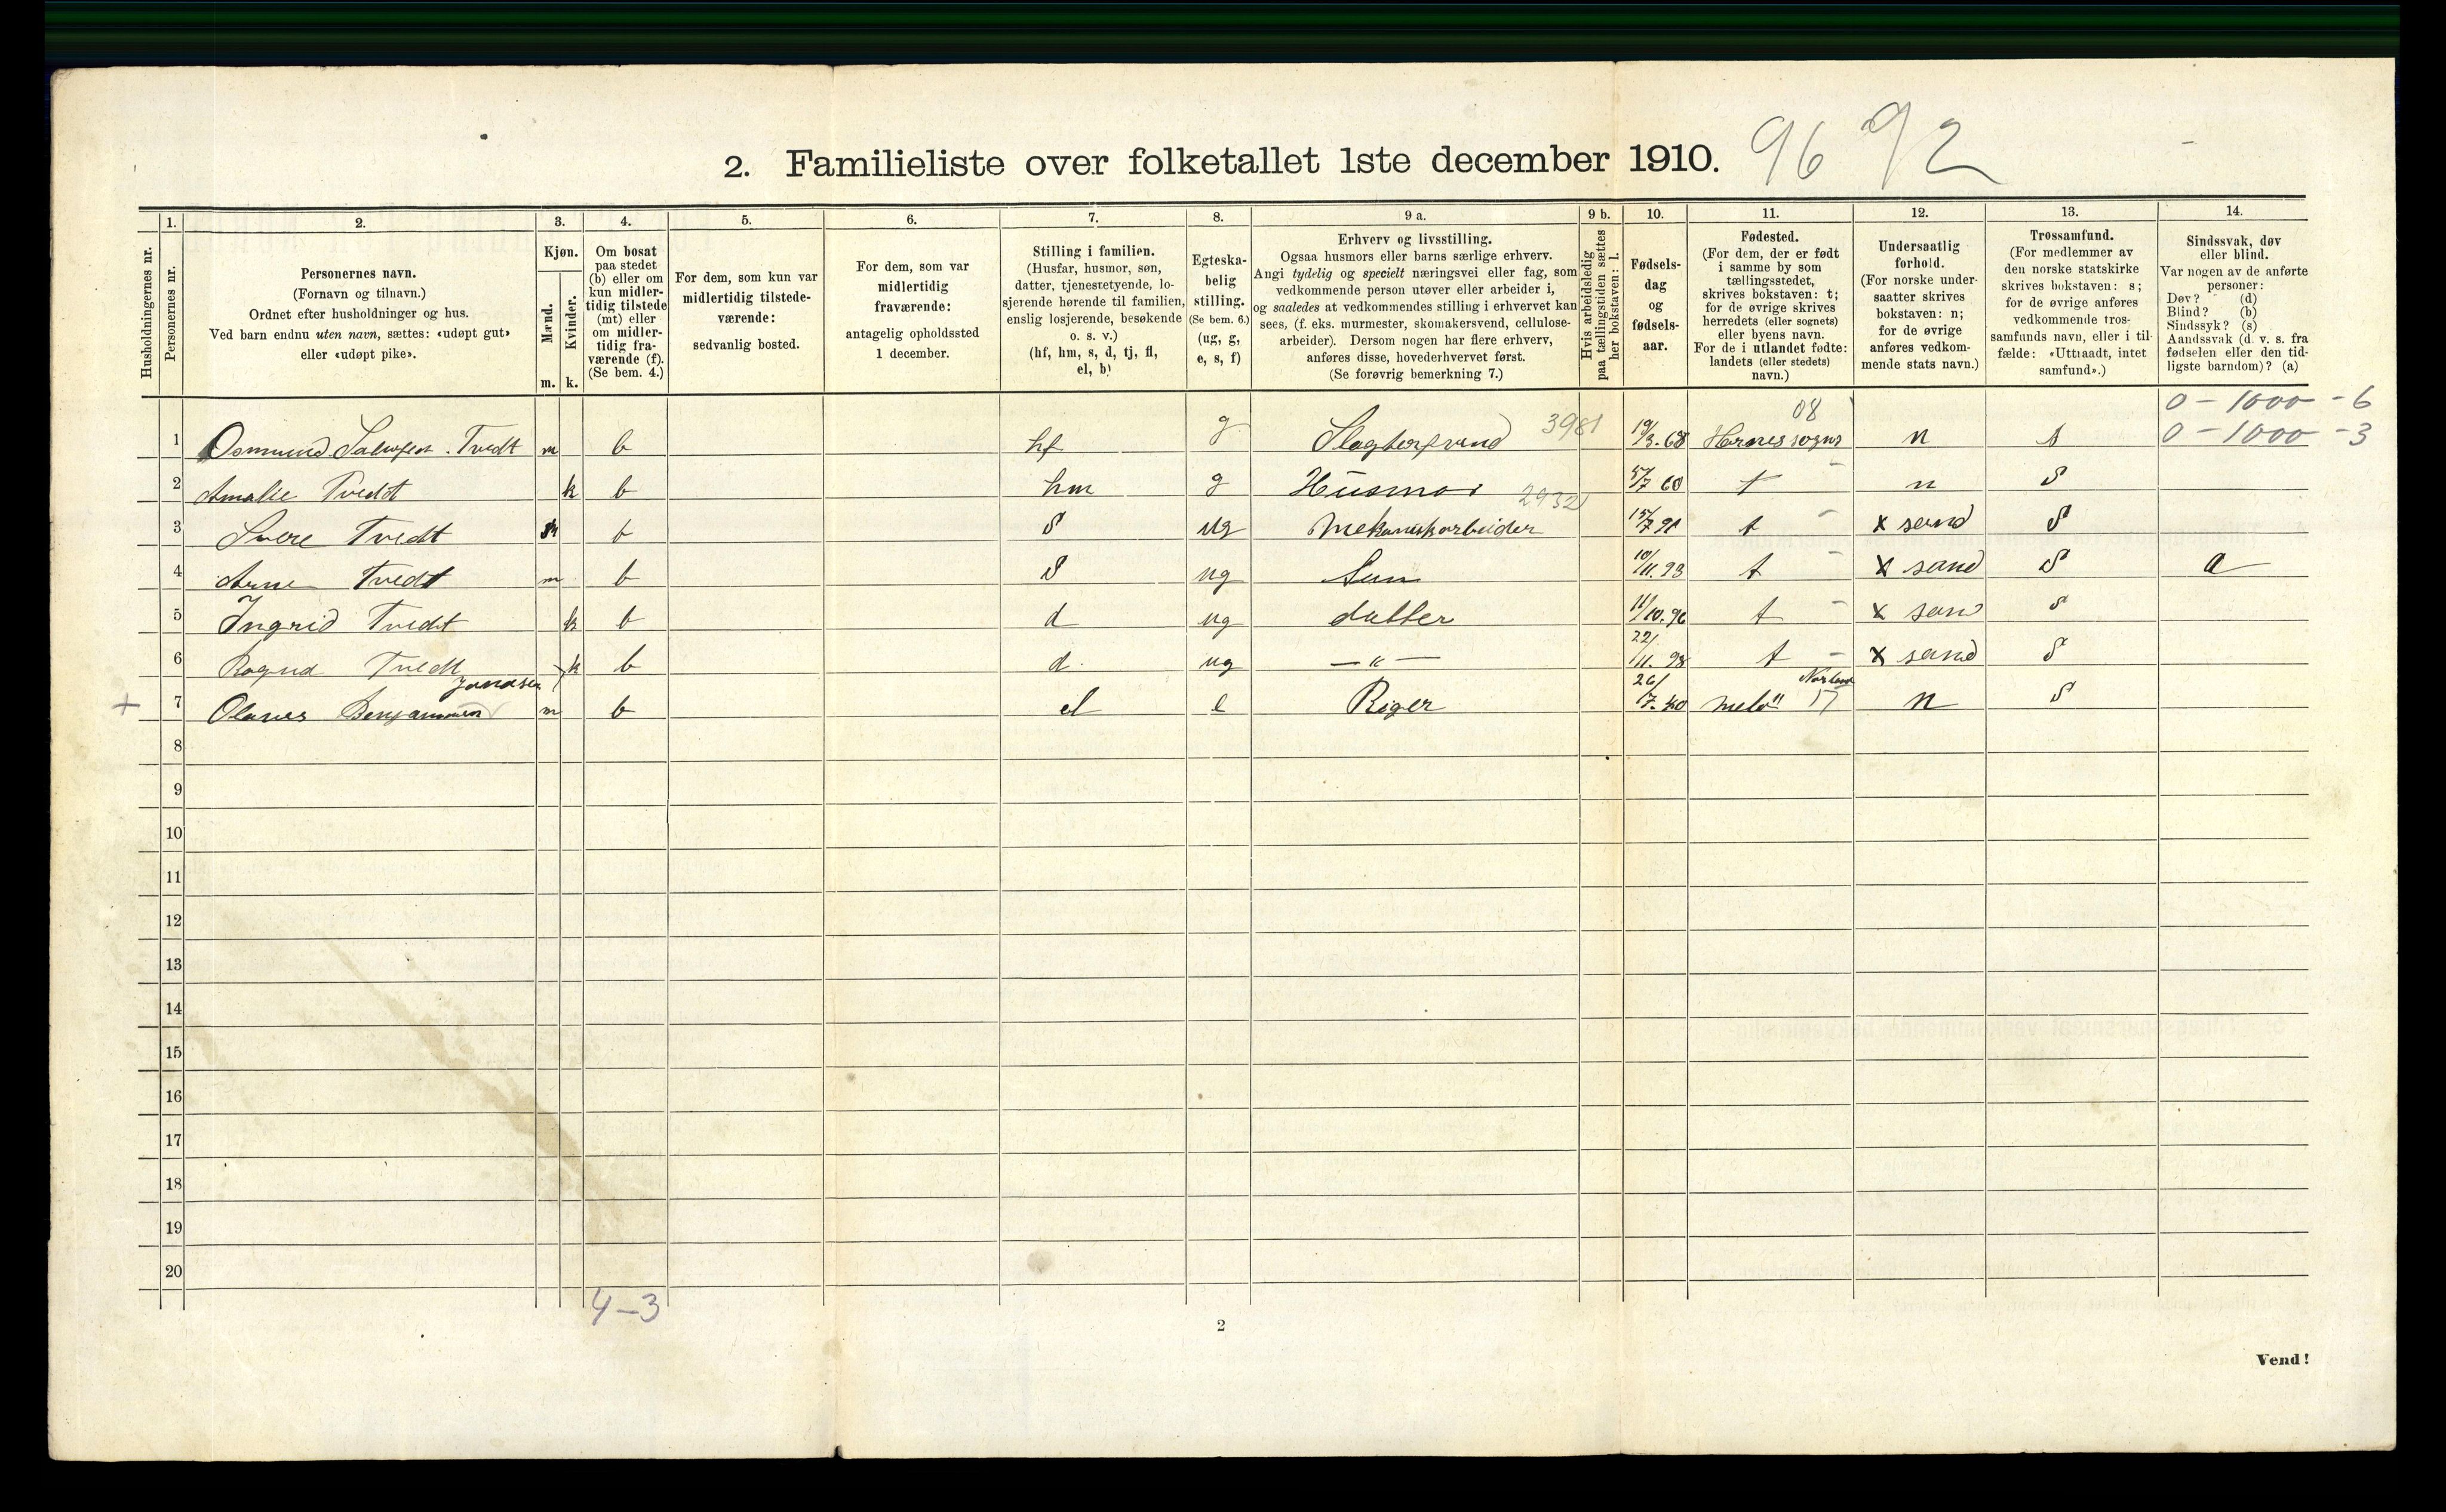 2. Familieliste over folketallet 1ste december 1910. 96 92
Husholdningernes nr.
1. Personernes nr.
2. Personernes navn. (Fornavn og tilnavn.) Ordnet efter husholdninger og hus. Ved barn endnu uten navn, sættes: «udøpt gut» eller «udøpt pike».
3. Kjøn. Mænd. m. Kvinder. k.
4. Om bosat paa stedet (b) eller om kun midlertidig tilstede (mt) eller om midlertidig fraværende (f). (Se bem. 4.)
5. For dem, som kun var midlertidig tilstedeværende: sedvanlig bosted.
6. For dem, som var midlertidig fraværende: antagelig opholdssted 1 december.
7. Stilling i familien. (Husfar, husmor, søn, datter, tjenestetyende, losjerende hørende til familien, enslig losjerende, besøkende o. s. v.) (hf, hm, s, d, tj, fl, el, b)
8. Egteskabelig stilling. (Se bem. 6.) (ug, g, e, s, f)
9 a. Erhverv og livsstilling. Ogsaa husmors eller barns særlige erhverv. Angi tydelig og specielt næringsvei eller fag, som vedkommende person utøver eller arbeider i, og saaledes at vedkommendes stilling i erhvervet kan sees, (f. eks. murmester, skomakersvend, cellulosearbeider). Dersom nogen har flere erhverv, anføres disse, hovederhvervet først. (Se forøvrig bemerkning 7.)
9 b. Hvis arbeidsledig paa tællingstiden sættes her bokstaven: l.
10. Fødselsdag og fødselsaar.
11. Fødested. (For dem, der er født i samme by som tællingsstedet, skrives bokstaven: t; for de øvrige skrives herredets (eller sognets) eller byens navn. For de i utlandet fødte: landets (eller stedets) navn.)
12. Undersaatlig forhold. (For norske undersaatter skrives bokstaven: n; for de øvrige anføres vedkommende stats navn.)
13. Trossamfund. (For medlemmer av den norske statskirke skrives bokstaven: s; for de øvrige anføres vedkommende trossamfunds navn, eller i tilfælde: «Uttraadt, intet samfund».)
14. Sindssvak, døv eller blind. Var nogen av de anførte personer: Døv? (d) Blind? (b) Sindssyk? (s) Aandssvak (d. v. s. fra fødselen eller den tidligste barndom)? (a)
08 0-1000-6
1 Osmund Salvesen Tvedt m b hf g Slagtersvend 3981 19/3. 68 Hernes sogns n s 0-1000-3
2 Amalie Tvedt k b hm g Husmor 2932 5/7 60 t n S
3 Svere Tvedt m b S ug Mekaniskarbeider 15/7 91 t x sønd S
4 Arne Tvedt m b S ug Søn 10/11. 93 t x sønd S a
5 Ingrid Tvedt k b d ug datter 11/10. 96 t x sønd S
6 Ragna Tvedt k b d. ug — " — 22/11. 98 t x sønd S
Jonassen Norland
+ 7 Olanes Benjaminsen m b el e Riger 26/7. 40 Melö 17 n S
8
9
10
11
12
13
14
15
16
17
18
19
20
4-3
2
Vend!